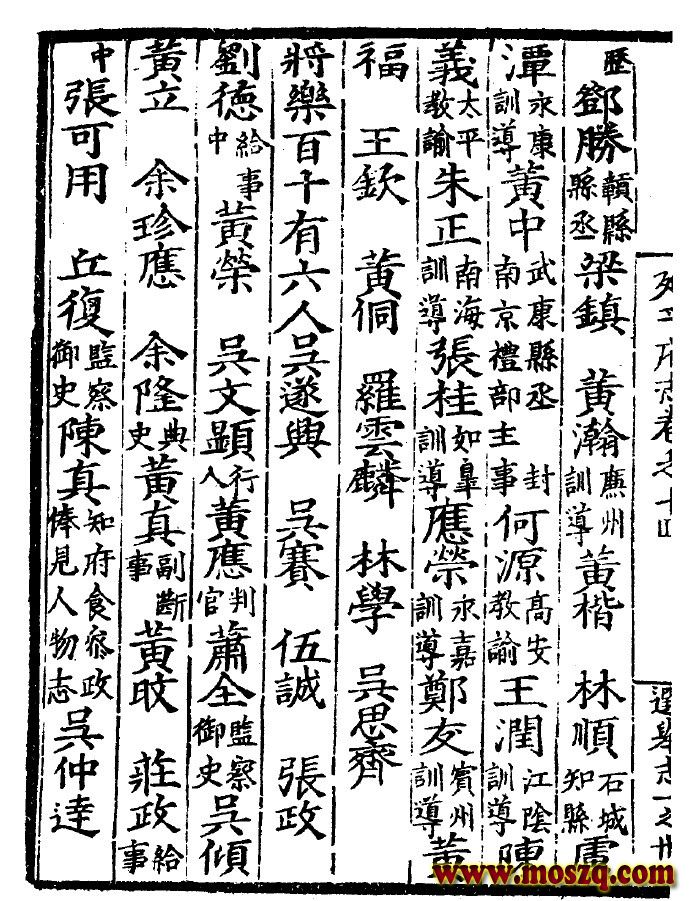 歷鄧勝贛縣縣丞梁鎮 黃瀚廉州訓導黃楷 林順石城知縣盧
潭永康訓導黃中武康縣丞封南京禮部主事何源高安教諭王潤江陰訓導陳
義太平教諭朱正南海訓導張桂如皐訓導應榮永嘉訓導鄭友賓州訓導黃
福 王欽 黃侗 羅雲麟 林學 吳思齊
將樂百十有六人吳遂興 吳賽 伍誠 張政
劉德給事中黃榮 吳文顯行人黃應判官蕭全監察御史吳傾
黃立 余珍應 余隆典史黃真副斷事黃旼 莊政給事
中張可用 丘復監察御史陳真知府食叅政俸見人物志吳仲達
www.moszq.com